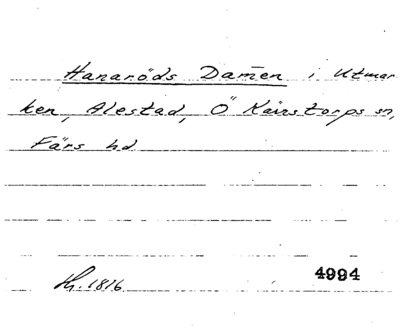 Hanaröds Dam̄en i Utmar
ken, Alestad, Ö Kärrstorps sn,
Färs hd
1816
4994